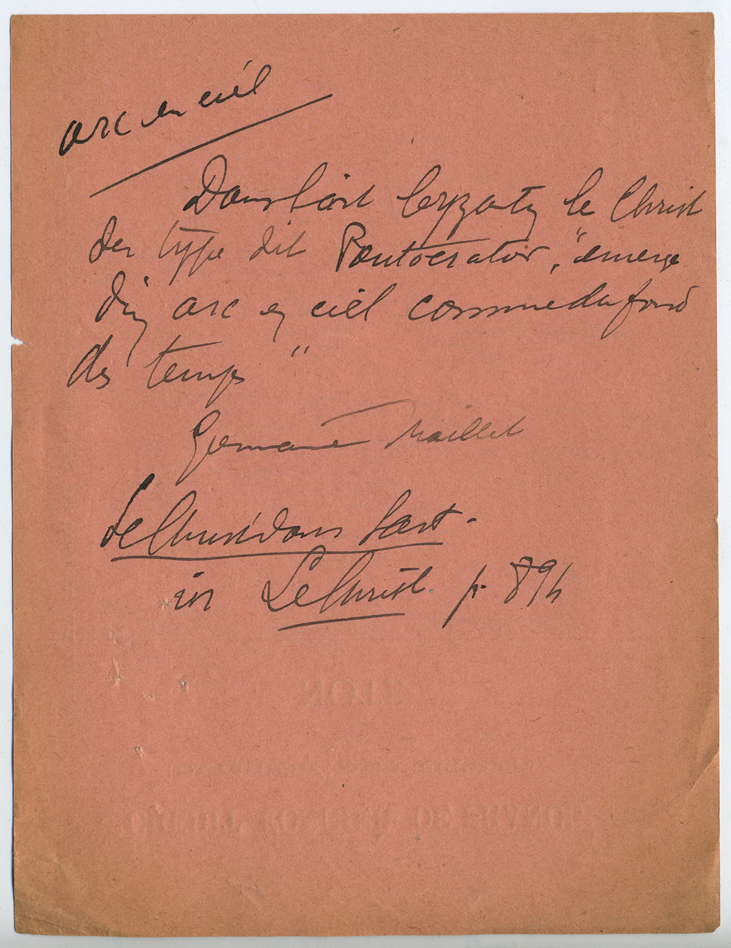 arc en ciel
Dans l'art byzantin le Christ
du type dit Pantocrator, "émerge
d'un arc en ciel comme du fond
des temps"
Germaine Maillet
Le Christ dans l'art.
in Le Christ. p. 894